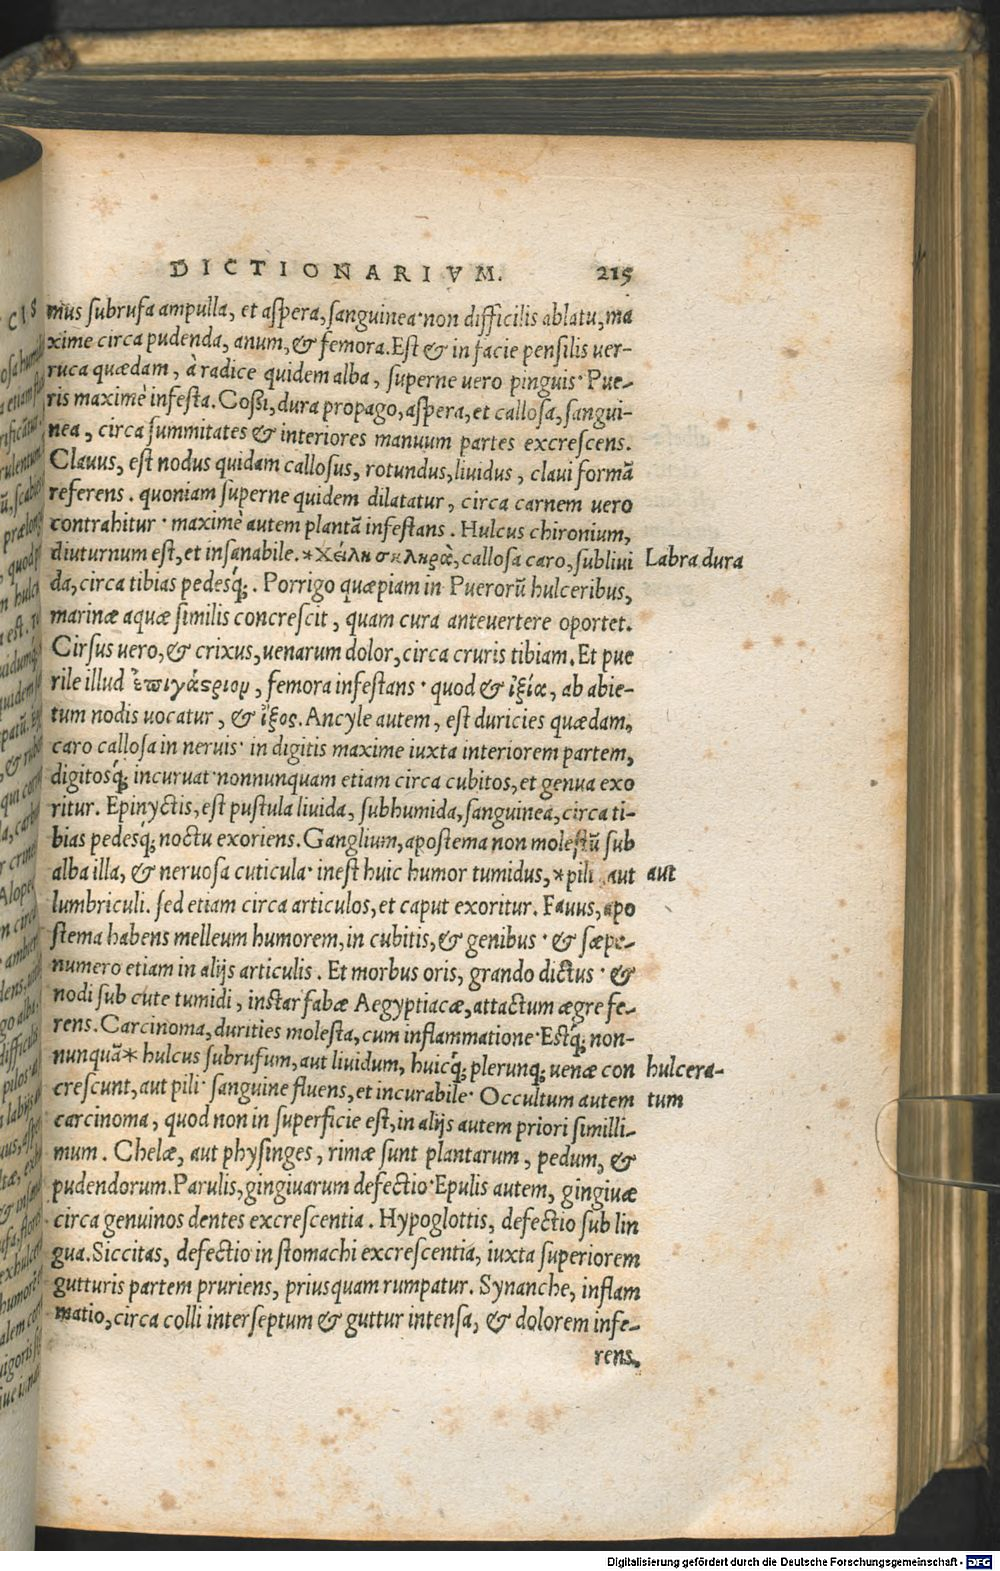 DICTIONARIVM. 215
mus subrufa ampulla, et aspera, sanguinea· non difficilis ablatu, ma
xime circa pudenda, anum, & femora. Est & in facie pensilis uer-
ruca quædam, à radice quidem alba, superne uero pinguis· Pue-
ris maximè infesta. Coßi, dura propago, aspera, et callosa, sangui-
nea, circa summitates & interiores manuum partes excrescens.
Clauus, est nodus quidam callosus, rotundus, liuidus, claui formā
referens. quoniam superne quidem dilatatur, circa carnem uero
contrahitur· maximè autem plantā infestans. Hulcus chironium,
diuturnum est, et insanabile. *Χείλη σκληρὰ, callosa caro, subliui Labra dura
da, circa tibias pedesq́;. Porrigo quæpiam in Puerorū hulceribus,
marinæ aquæ similis concrescit, quam cura anteuertere oportet.
Cirsus uero, & crixus, uenarum dolor, circa cruris tibiam. Et pue
rile illud ἐπιγάστριον, femora infestans· quod & ἰξία, ab abie-
tum nodis uocatur, & ἰξος. Ancyle autem, est duricies quædam,
caro callosa in neruis· in digitis maxime iuxta interiorem partem,
digitosq́; incuruat· nonnunquam etiam circa cubitos, et genua exo
ritur. Epinyctis, est pustula liuida, subhumida, sanguinea, circa ti-
bias pedesq́; noctu exoriens. Ganglium, apostema non molestū sub
alba illa, & neruosa cuticula· inest huic humor tumidus, *pili aut aut
lumbriculi. sed etiam circa articulos, et caput exoritur. Fauus, apo
stema habens melleum humorem, in cubitis, & genibus· & sæpe-
numero etiam in alijs articulis. Et morbus oris, grando dictus· &
nodi sub cute tumidi, instar fabæ Aegyptiacæ, attactum ægre fe-
rens. Carcinoma, durities molesta, cum inflammatione· Estq́; non-
nunquā* hulcus subrufum, aut liuidum, huicq́; plerunq; uenæ con hulcera-
crescunt, aut pili· sanguine fluens, et incurabile· Occultum autem tum
carcinoma, quod non in superficie est, in alijs autem priori simili-
mum. Chelæ, aut physinges, rimæ sunt plantarum, pedum, &
pudendorum. Parulis, gingiuarum defectio· Epulis autem, gingiuæ
circa genuinos dentes excrescentia. Hypoglottis, defectio sub lin
gua. Siccitas, defectio in stomachi excrescentia, iuxta superiorem
gutturis partem pruriens, priusquam rumpatur. Synanche, inflam
matio, circa colli interseptum & guttur intensa, & dolorem infe-
rens,
Digitalisierung gefördert durch die Deutsche Forschungsgemeinschaft - DFG